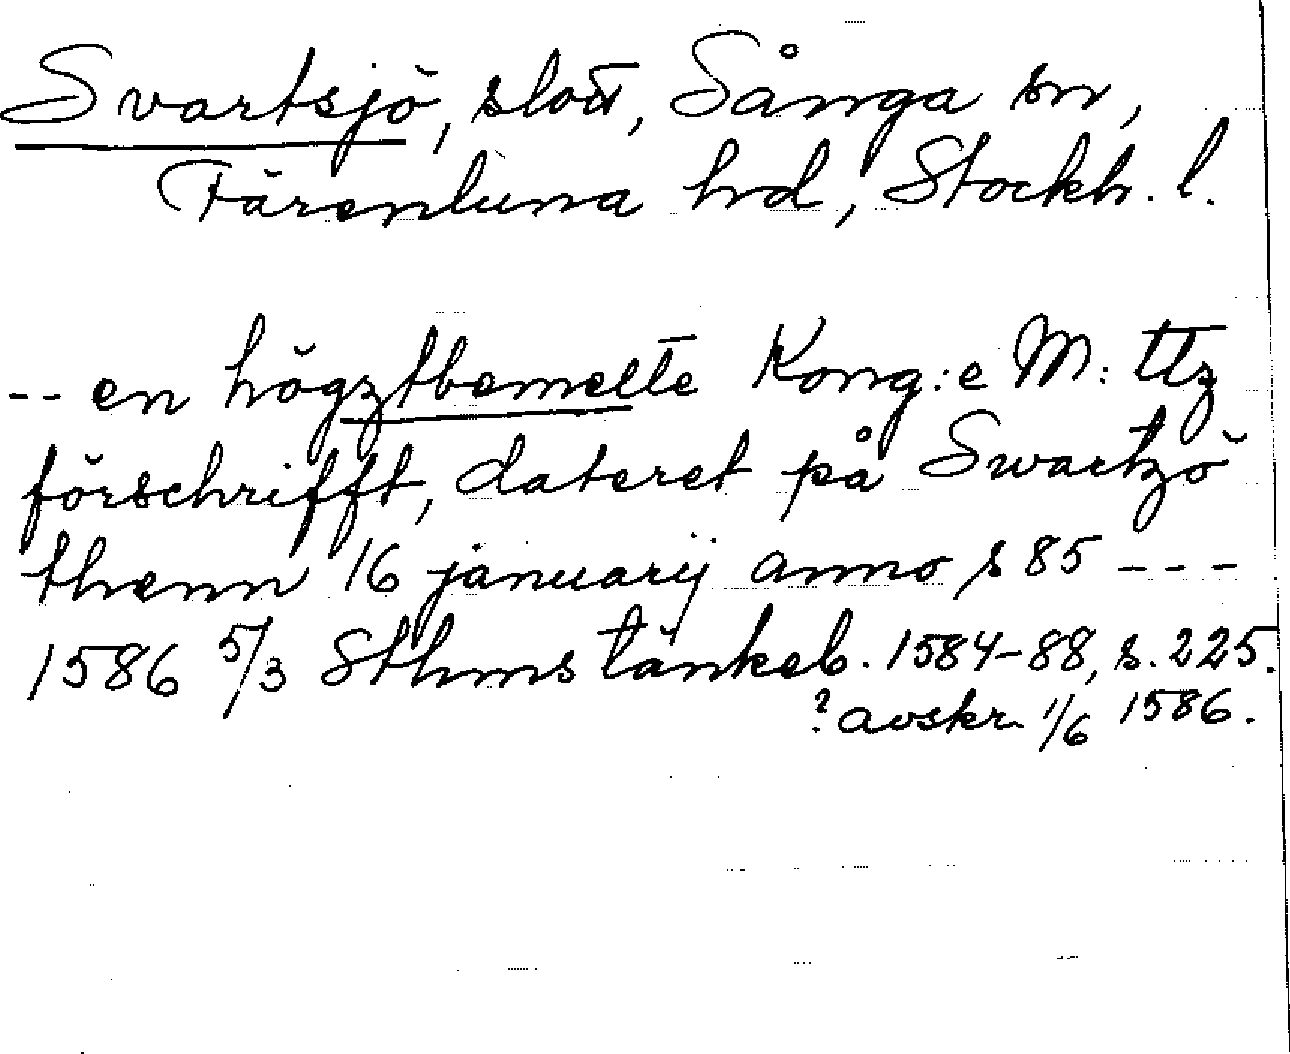 Svartsjö, slott, Sånga sn,
Färentuna hd, Stockh. l.
-- en högztbemelte Kong:e M:ttz
förschrifft, dateret på Swartzö
thenn 16 januarij anno s 85 ---
1586 5/3 Sthms tänkeb. 1584-88, s. 225.
? avskr. 1/6 1586.